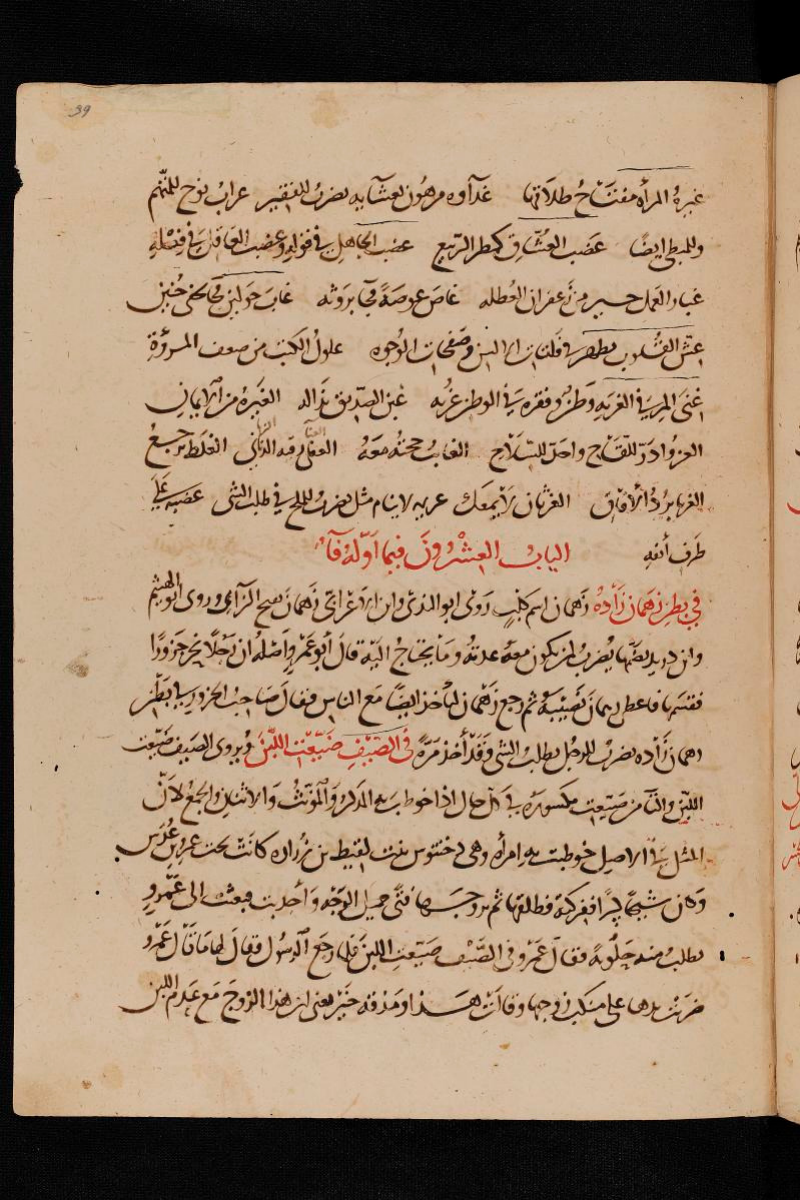 39
غيرة المرأة مفتاح طلاقها غداوه مرهون بعشايه يضرب للفقير غراب نوح للمتهم
وللبطى ايضًا غضب العشاق كمطر الربيع غضب الجاهل في قوله وغضب العاقل في فعله
غبار العمل خير من زعفران العطله غاص غوصة في بروثه غاب حولين بخفى حنين
غش القلوب يظهر في فلتات الالسن وصفحات الوجوه غلول الكتب من ضعف المروّة
غنى المرء في الغربه وطن وفقره في الوطن غربه غبن الصديق نذاله الغيرة من الايمان
الغزو ادرّ للقاح واحدّ للسلاح الغائب حجته معه الغلط يرجع
الغربا برد الافاق الغرثان لا يمعك غريبه لاينام مثل يضرب للملح في طلب الشى غضبه على
طرف أنفه الباب العشرون فيما اوّله فآ
في بطن زهمان زاده زهمان اسم كلب روى ابو الندى وابن الاعرابى زهمان بفتح الزاى وروى ابو الهيثم
وابن دريد بضمها يضرب لمن يكون معه عدته وما يحتاج اليه قال أبو عمرو واصله ان رجلا نحر جزورا
فقسمها فاعطى زهمان نصيبه ثم رجع زهمان ليأخذ ايضًا مع الناس فقال صاحب الجزور في بطن
زهمان زاده يضرب للرجل يطلب الشى وقد أخذ مرّة في الصيف ضيعت اللبن ويروى الصيف ضيعت
اللبن والتآ من ضيعت مكسورة في كل حال اذا خوطب به المذكر والمونث والاثنان والجمع لانّ
المثل في الاصل خوطبت به امرأه وهى دختنوس بنت لقيط بن زراره كانت تحت عمرو بن عُدُس
وكان شيخًا كبيرا ففركته فطلقها ثم تزوجها فتى جميل الوجه وأجدبت فبعثت الى عمرو
تطلب منه حلوبة فقال عمرو في الصيف ضيعت اللبن فلما رجع الرسول وقال لها ما قال عمرو
ضربت يدها على منكب زوجها وقالت هـذا ومذقه خير يعنى ان هذا الزوج مع عدم اللبن